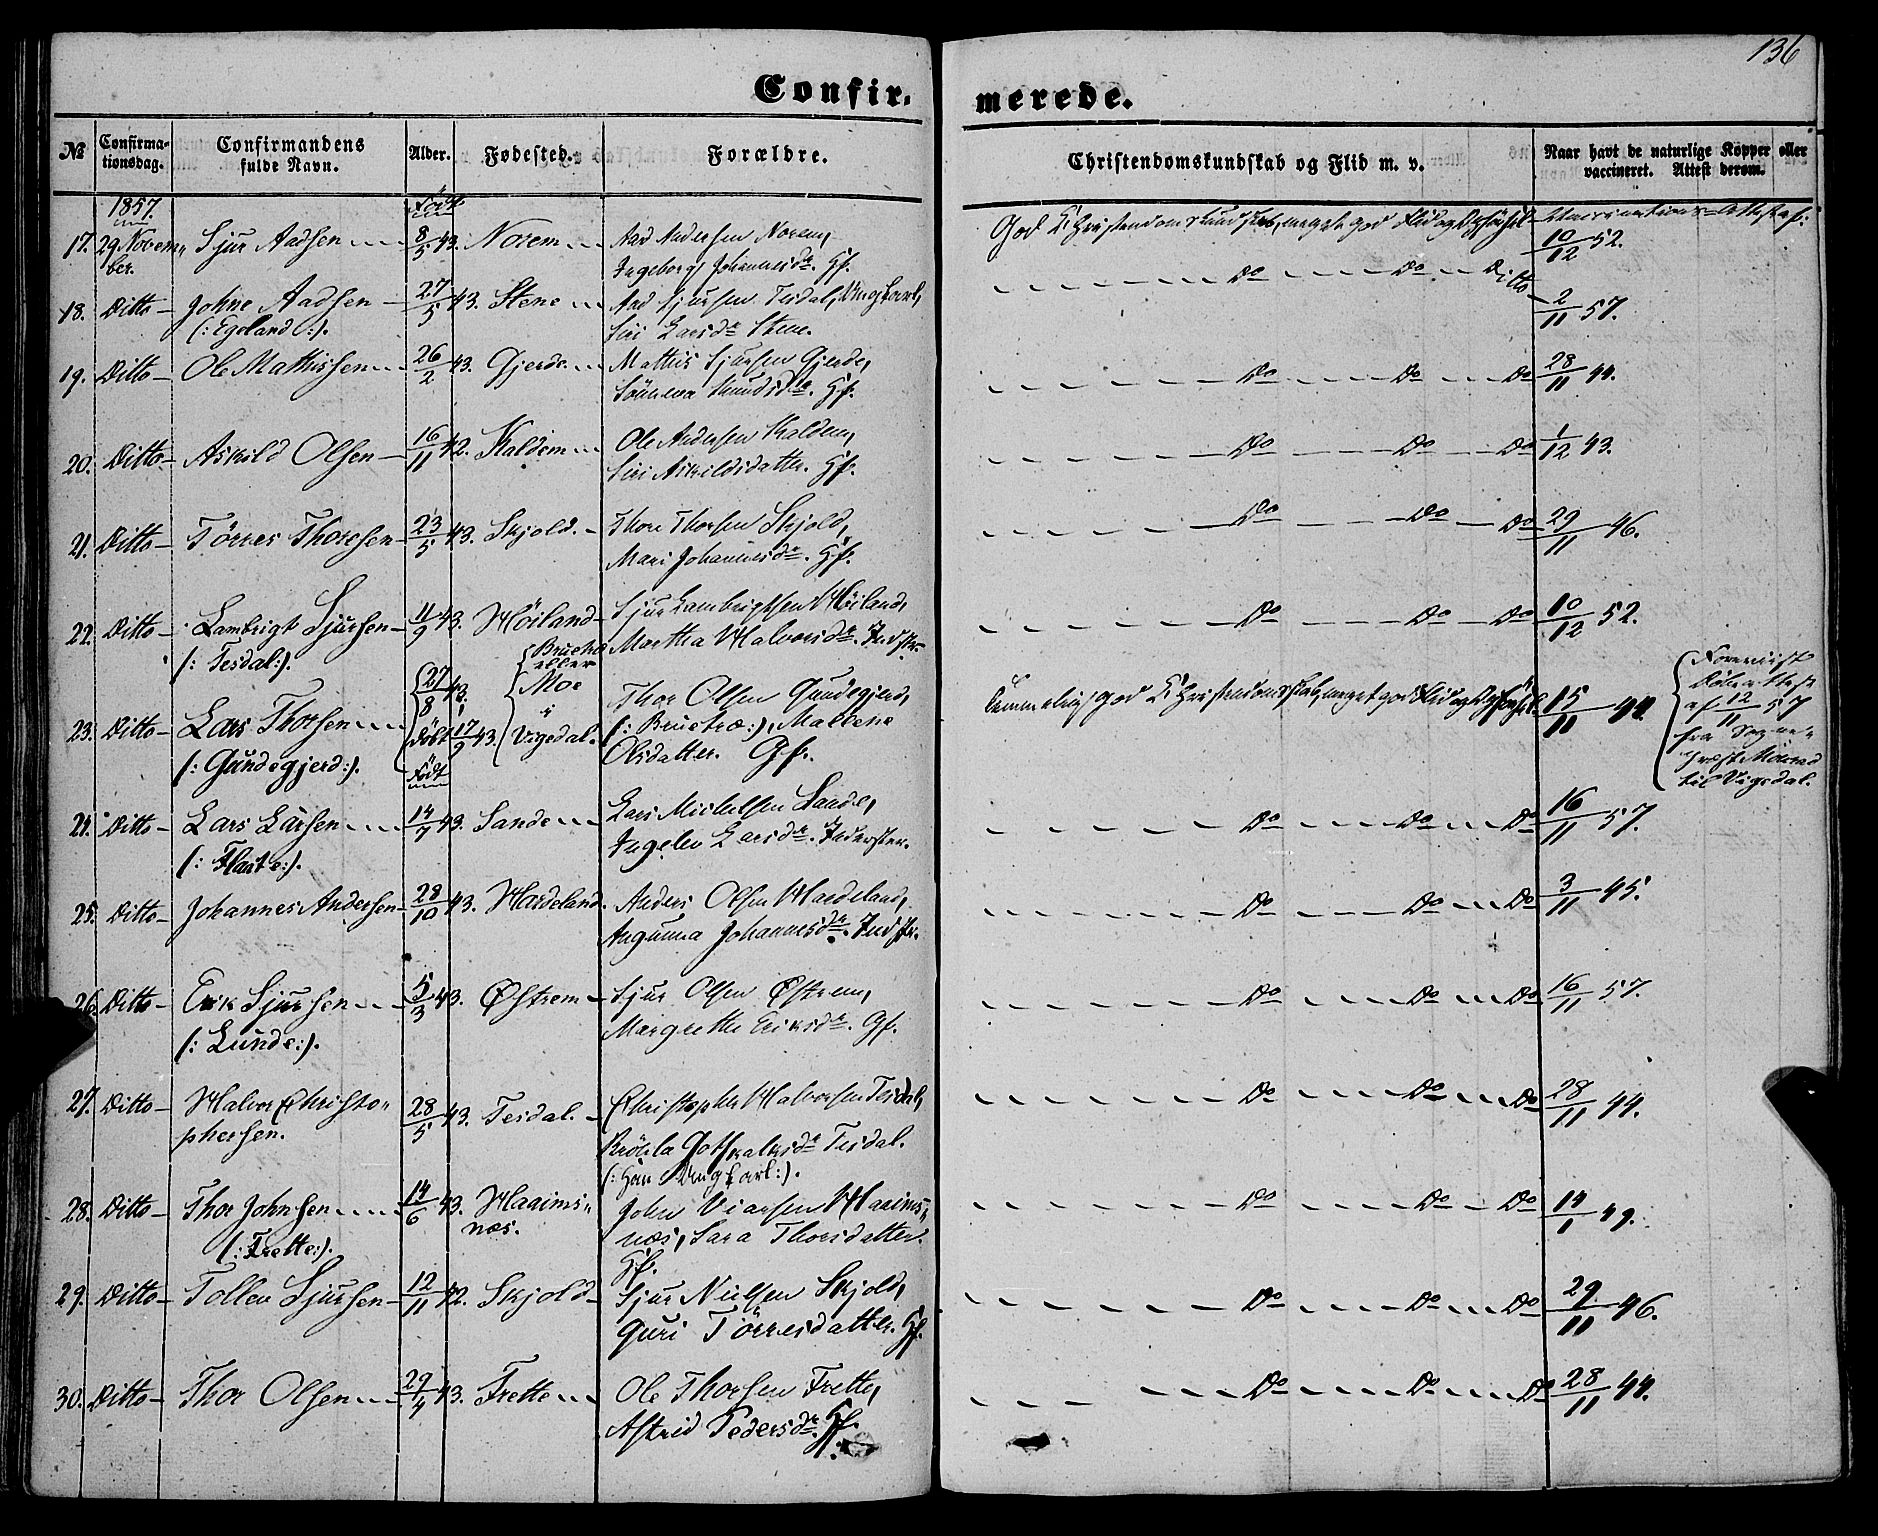 136
Confir-merede.
№ Confirma-tionsdag. Confirmandens fulde Navn. Alder. Fødested. Forældre. Christendomskundskab og Flid m. v. Naar havt de naturlige Kopper eller vaccineret. Attest derom.
1857. Födt
God Christendomskundskab, meget god Flid og Opförsel Vaccinations-Attest af:
17. 29 November. Sjur Aadsen 8/5 43. Norem Aad Andersen Norem, 10/12 52.
Ingeborg Johannesdr. Gf.
18. Ditto Johne Aadsen 27/5 43. Stene Aad Sjursen Tesdal, Ungkarl, Do Do Ditto 2/11 57.
(: Egeland :). Siri Larsdr Stene.
19. Ditto Ole Mathissen 26/2 43. Gjerde Mathis Sjursen Gjerde, Do Do Do 28/11 44.
Sönneva Knudsdr. Gf.
20. Ditto Askild Olsen 16/11 42. Kaldem Ole Andersen Kaldem, Do Do Do 1/12 43.
Siri Askildsdatter. Gf.
21. Ditto Törres Thorsen 23/5 43. Skjold. Thore Thorsen Skjold, Do Do Do 29/11 46.
Mari Johannesdr. Gf.
22. Ditto Lambrigt Sjursen 11/9 43. Höiland Sjur Lambrigtsen Höiland, Do Do Do 10/12 52.
(: Tesdal:). Martha Halvorsdr. Indstr.
23. Ditto Lars Thorsen 27/8 43. Döbt 17/9 43. Moe i Vigedal. Thor Olsen Gundegjerd, Temmelig god Christendomskab, meget god Flid og Opförsel. 15/11 44.
eller
(: Gundegjerd:). Malene
Olsdatter. Gf.
Foreviist
Döbeattest
af 12/11 57
fra Sogne-
præst
til Vigedal.
Födt
24. Ditto Lars Larsen 14/7 43. Sande Lars Michelsen Sande, Do Do Do 16/11 57.
Ingelev Larsdr. Inderster.
25. Ditto Johannes Andersen 28/10 43. Hardeland. Anders Olsen Hardeland, Do Do Do 3/11 45.
Angunna Johannesdr. Indstr.
26. Ditto Erik Sjursen 5/3 43. Østrem Sjur Olsen Østrem, Do Do Do 16/11 57.
(: Lunde:). Margrethe Eriksdr. Gf.
27. Ditto Halvor Christo- 28/5 43. Tesdal. Christopher Halvorsen Tesdal, Do Do Do 28/11 44.
phersen. Gotskalksdr Tesdal.
(: Han Ungkarl:).
28. Ditto Thor Johnsen 14/6 43. Haaims- John Halvorsen Haaims- Do Do Do 14/1 49.
(: Frette:). næs. næs, Sara Thorsdatter.
Gf.
29. Ditto Tollev Sjursen 12/11 42. Skjold Sjur Nielsen Skjold, Do Do Do 29/11 46.
Guri Törresdatter. Gf.
30. Ditto Thor Olsen 29/4 43. Frette Ole Thorsen Frette, Do Do Do 28/11 44.
Astrid Pedersdr. Gf.